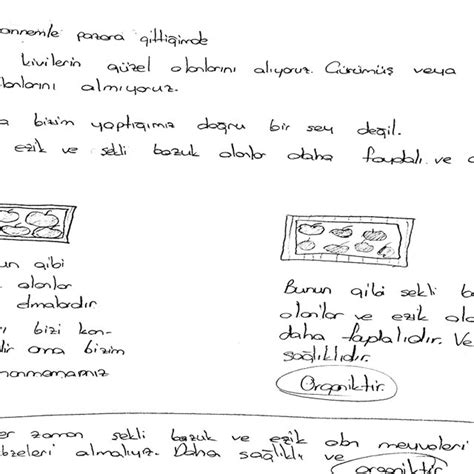 annemle pazara gittiğimde
kivilerin güzel olanlarını alıyoruz. Çürümüş veya
lanlarını almıyoruz.
a bizim yaptığımız doğru bir şey değil.
ezik ve şekli bozuk olanlar daha faydalı ve
un gibi
olanlar
elmalardır
ı bizi kan-
dir ama bizim
anmamamız
Bunun gibi şekli b
olanlar ve ezik ola
daha faydalıdır. Ve
sağlıklıdır.
Organiktir.
er zaman şekli bozuk ve ezik olan meyveleri
bzeleri almalıyız. Daha sağlıklı ve
organiktir